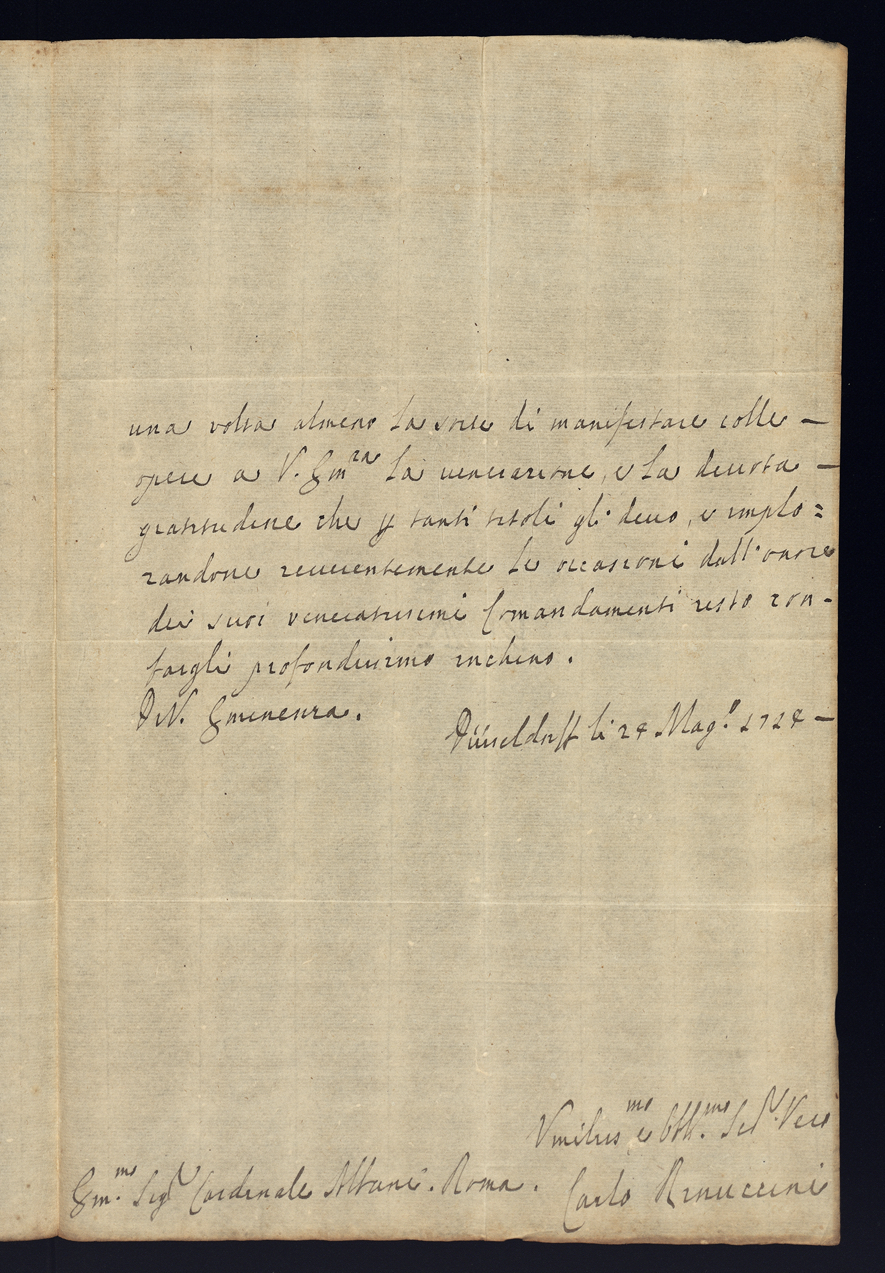 una volta almeno la sorte di manifestare colle —
opere a V. Em.za la venerazione, e la devota —
gratitudine che p tanti titoli gli devo, e implo=
randone reverentemente le occasioni dall'onore
dei suoi veneratissimi Comandamenti resto con-
fargli profondissimo inchino.
Di V. Eminenza.
Düsseldorff li 24 Mag.o 1724 —
Vmiliss.mo e Obb.mo Ser.e Vero
Em.mo Sig.r Cardinale Albani. Roma. Carlo Rinuccini